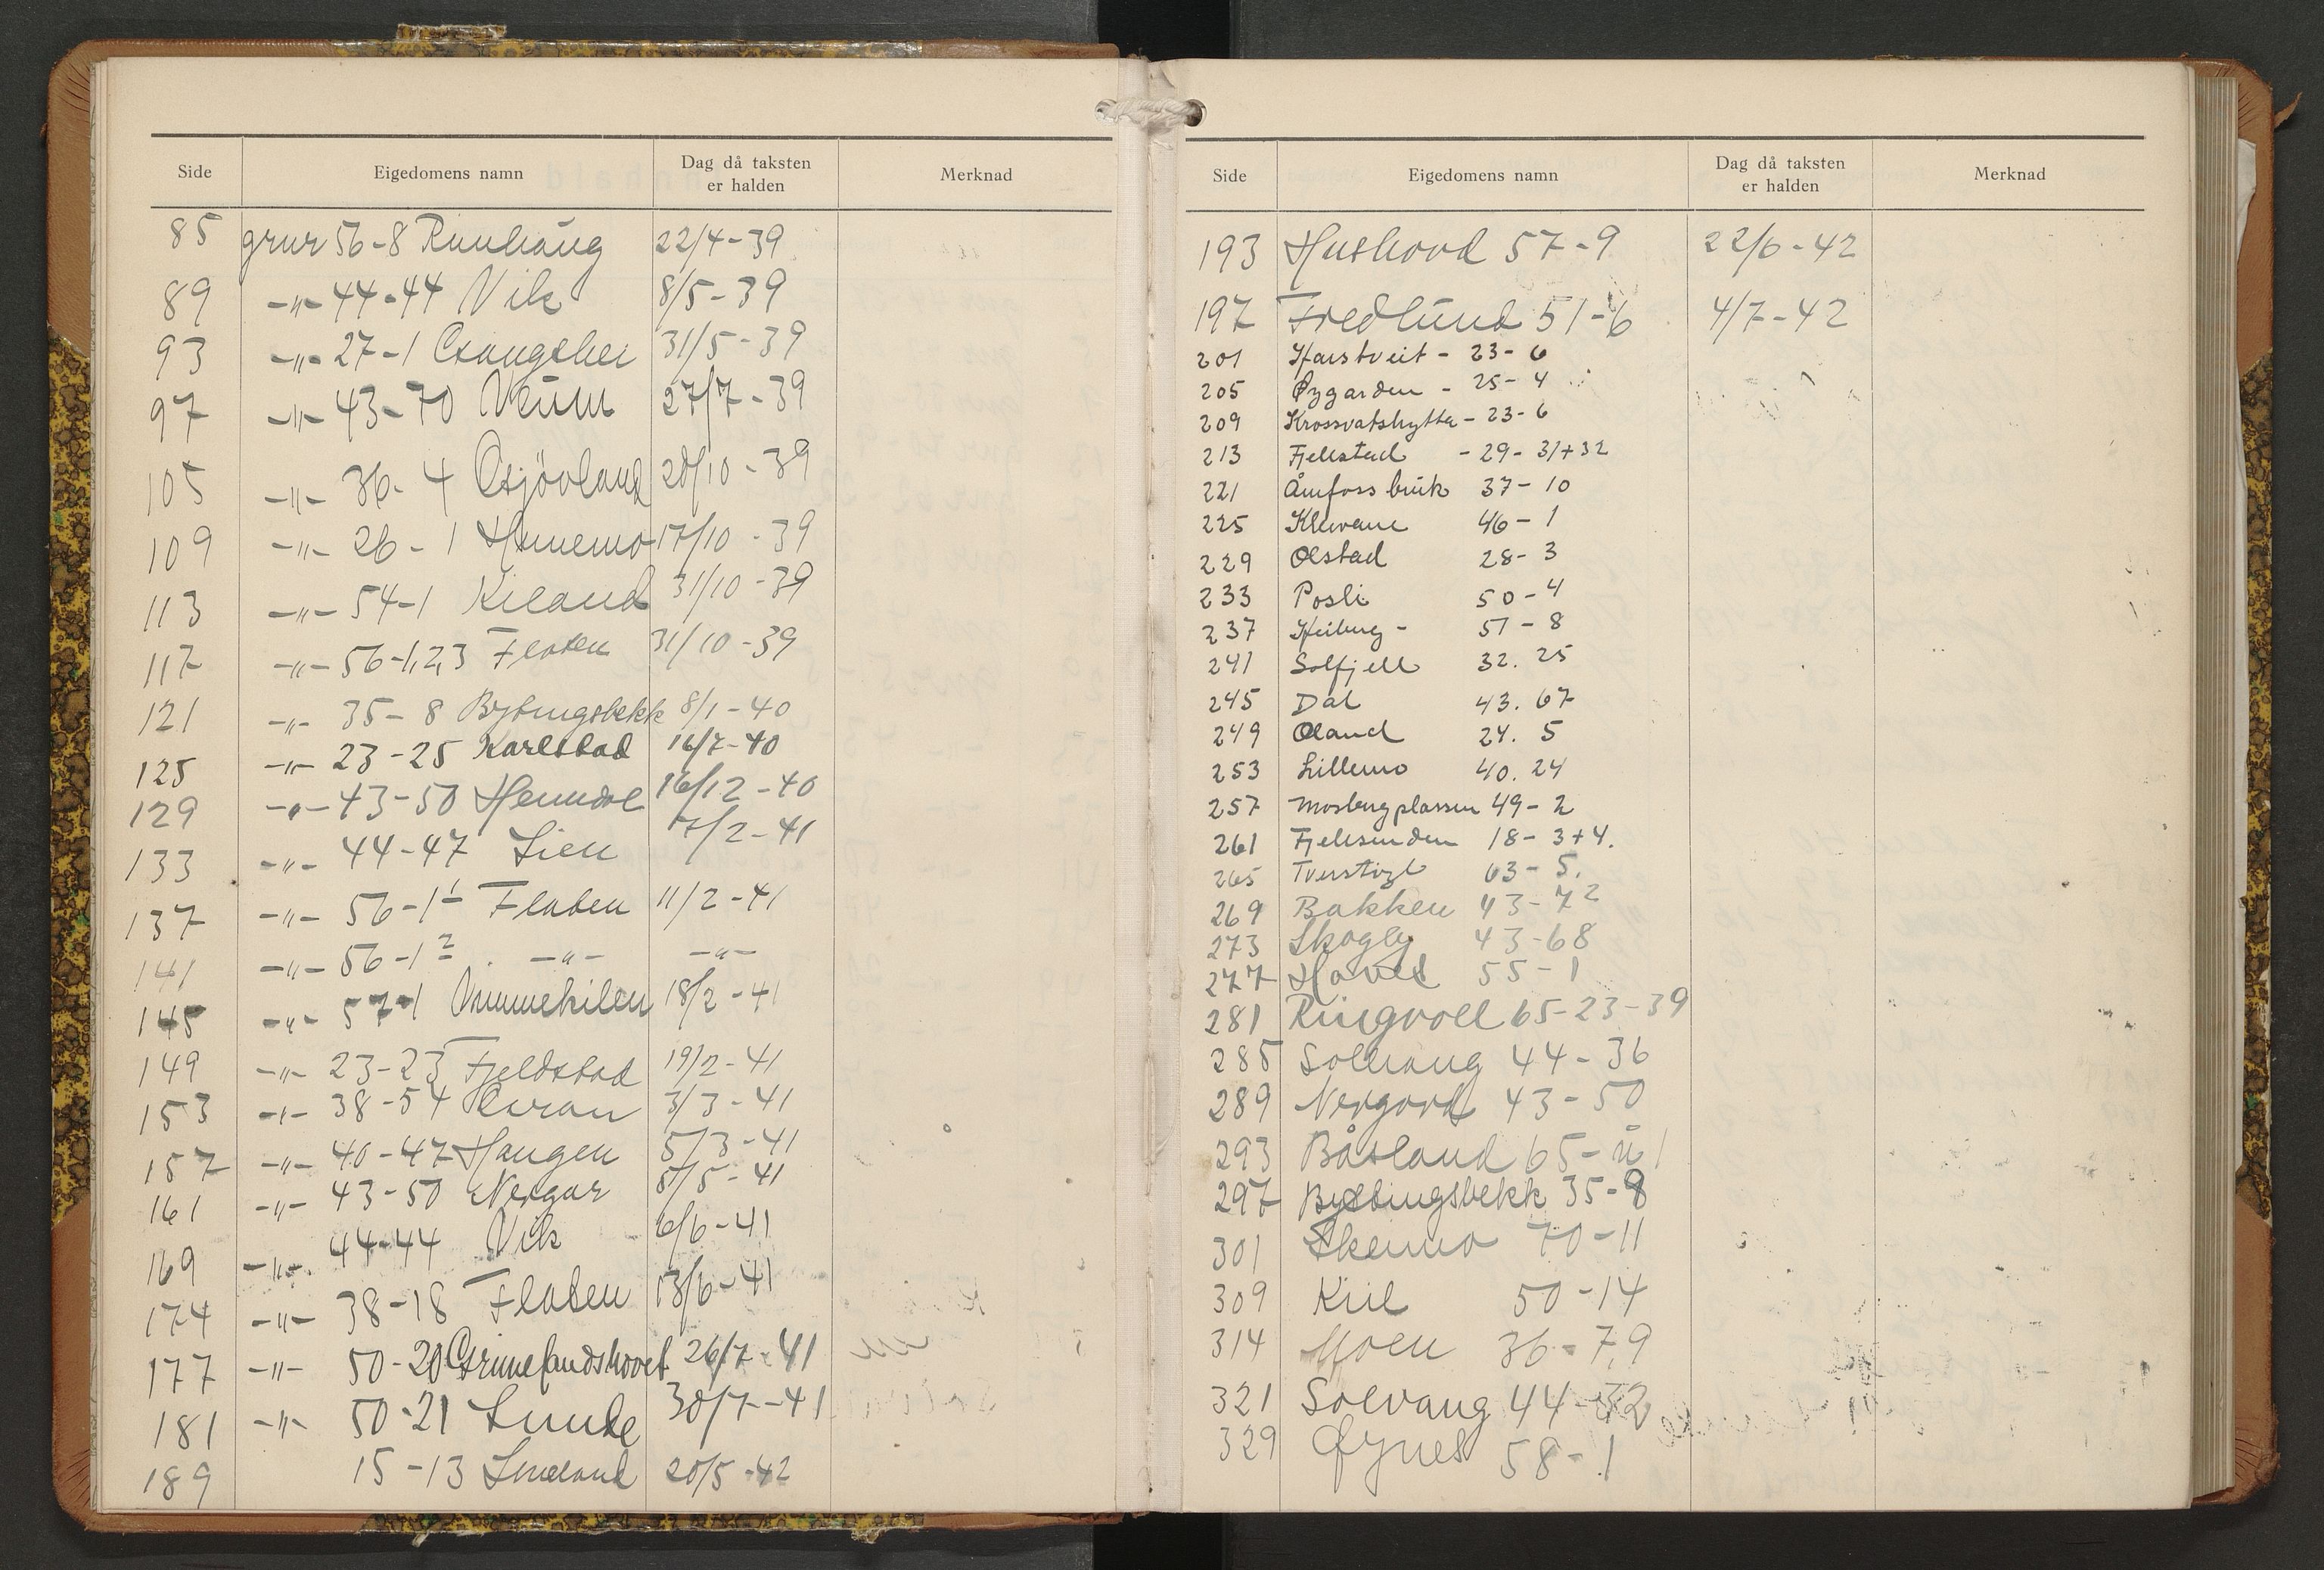 Side Eigedomens namn Dag då taksten er halden Merknad
85 grnr 56-8 Runhaug 22/4-39
89 -"- 44-44 Vik 8/5-39
93 -"- 27-1 31/5-39
97 -"- 43-70 Veum 27/7-39
105 -"- 36-4 20/10-39
109 -"- 26-1 17/10-39
113 -"- 54-1 Kiland 31/10-39
117 -"- 56-1,2,3 Flaten 31/10-39
121 -"- 35-8 Bytingsbekk 8/1-40
125 -"- 23-25 Karlstad 16/7-40
129 -"- 43-50 16/12-40
133 -"- 44-47 Lien 7/2-41
137 -"- 56-1 1 Flaten 11/2-41
141 -"- 56-1 2 -"- -"-
145 -"- 57-1 18/2-41
149 -"- 23-23 Fjeldstad 19/2-41
153 -"- 38-54 3/3-41
157 -"- 40-47 Haugen 5/3-41
161 -"- 43-50 Nergar 8/5-41
169 -"- 44-44 Vik 6/6-41
174 -"- 38-18 Flaten 13/6-41
177 -"- 50-20 26/7-41
181 -"- 50-21 Lunde 30/7-41
189 15-13 20/5-42
Side Eigedomens namn Dag då taksten er halden Merknad
193 Hushovd 57-9 22/6-42
197 Fredlund 51-6 4/7-42
201 Harstveit - 23-6
205 Øygarden - 25-4
209 Krossvatshytta - 23-6
213 Fjellstad - 29-31+32
221 Åmfoss bruk 37-10
225 Klevane 46-1
229 Olstad 28-3
233 Posli 50-4
237 Heiberg - 51-8
241 Solfjell 32. 25
245 Dal 43. 67
249 Oland 24. 5
253 Lillemo 40. 24
257 Mosbergplassen 49-2
261 18-3+4.
265 63-5.
269 Bakken 43-72
273 Skogly 43-68
277 55-1
281 Ringvoll 65-23-39
285 Solhaug 44-36
289 Nergard 43-50
293 Båsland 65-
297 Bytingsbekk 35-8
301 Skeimo 70-11
309 Kiil 50-14
314 Moen 36-7,9
321 Solvang 44-32
329 58-1